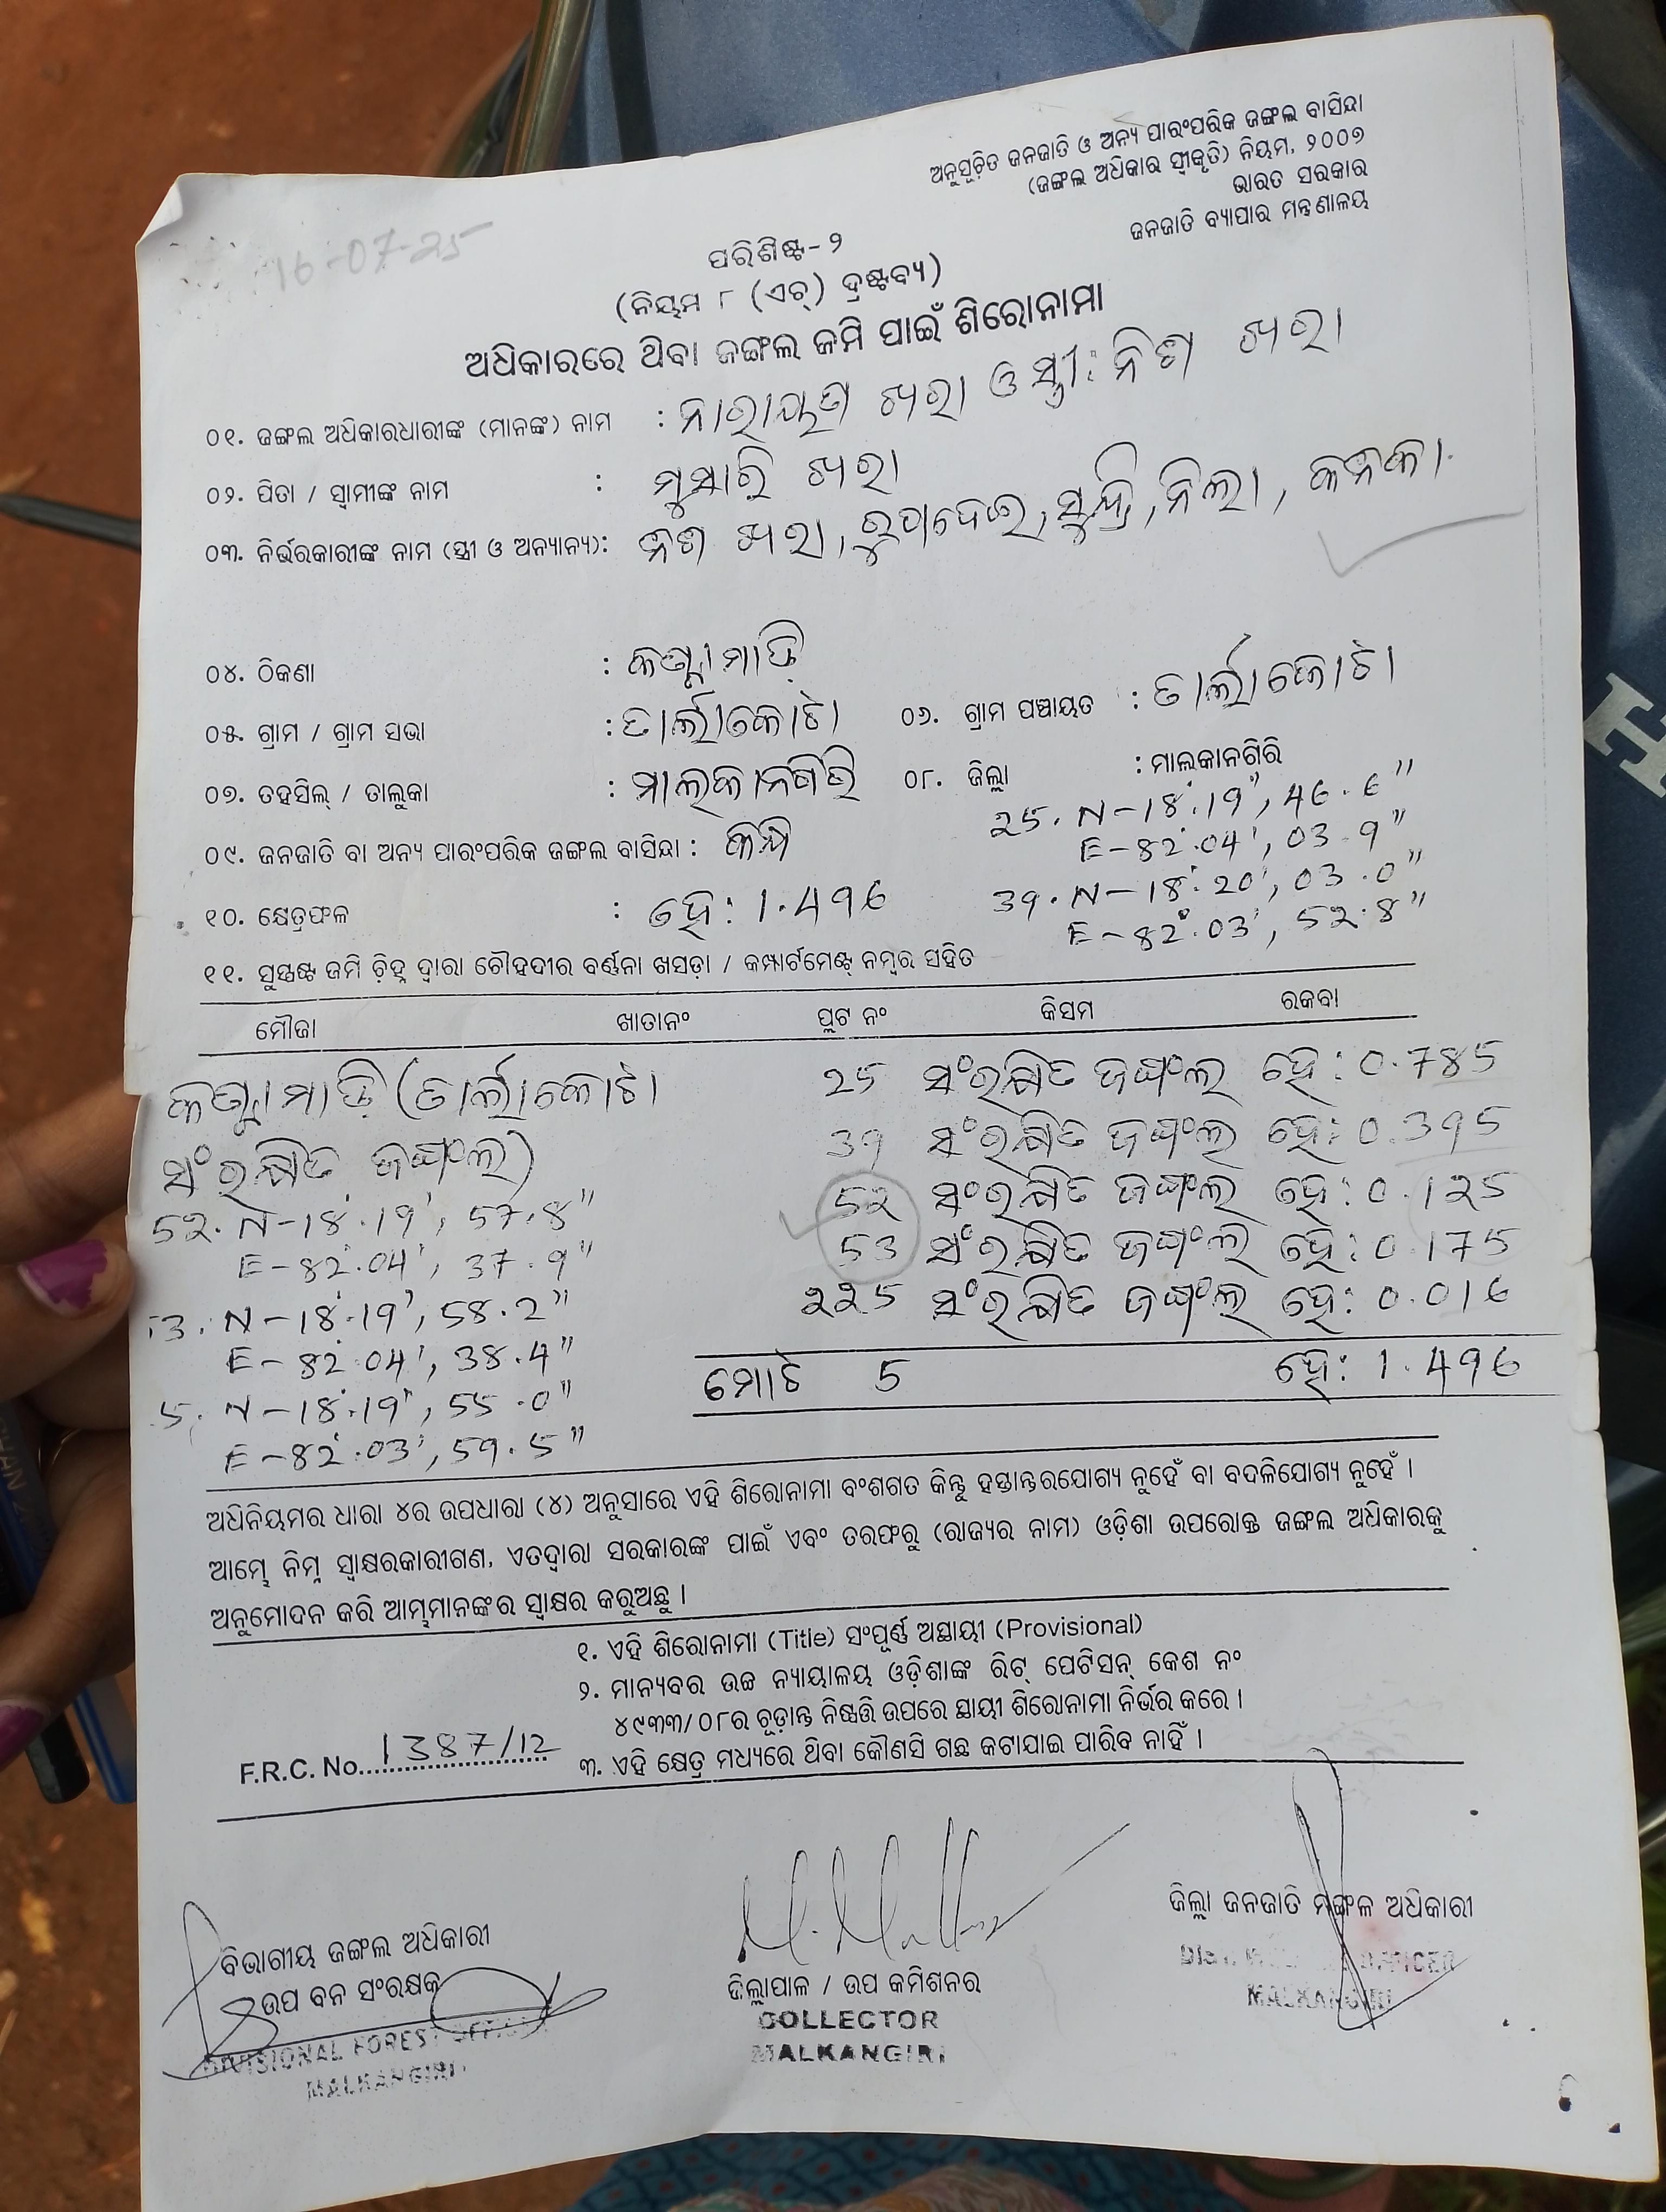 ଅନୁସୂଚିତ ଜନଜାତି ଓ ଅନ୍ୟ ପାରଂପରିକ ଜଙ୍ଗଲ ବାସିନ୍ଦା
(ଜଙ୍ଗଲ ଅଧିକାର ସ୍ୱୀକୃତି) ନିୟମ, ୨୦୦୭
ଭାରତ ସରକାର
ଜନଜାତି ବ୍ୟାପାର ମନ୍ତ୍ରଣାଳୟ
16-07-25
ପରିଶିଷ୍ଟ-୨
(ନିୟମ ୮ (ଏଚ୍) ଦ୍ରଷ୍ଟବ୍ୟ)
ଅଧିକାରରେ ଥିବା ଜଙ୍ଗଲ ଜମି ପାଇଁ ଶିରୋନାମା
୦୧. ଜଙ୍ଗଲ ଅଧିକାରଧାରୀଙ୍କ (ମାନଙ୍କ) ନାମ : ନାରାୟଣ ଖରା ଓ ସ୍ତ୍ରୀ: ଖରା
୦୨. ପିତା / ସ୍ୱାମୀଙ୍କ ନାମ : ମୁସାରି ଖରା
୦୩. ନିର୍ଭରକାରୀଙ୍କ ନାମ (ସ୍ତ୍ରୀ ଓ ଅନ୍ୟାନ୍ୟ): ଖରା, ରୁପାଦେଇ, ସୁନ୍ଦ୍ରି, ନିଲା, କନକା
୦୪. ଠିକଣା :
୦୫. ଗ୍ରାମ / ଗ୍ରାମ ସଭା : ତାର୍ଲାକୋଟା ୦୬. ଗ୍ରାମ ପଞ୍ଚାୟତ : ତାର୍ଲାକୋଟା
୦୭. ତହସିଲ୍ / ତାଲୁକା : ମାଲକାନଗିରି ୦୮. ଜିଲ୍ଲା : ମାଲକାନଗିରି
25. N-18°.19', 46.6"
E-82°.04', 03.9"
୦୯. ଜନଜାତି ବା ଅନ୍ୟ ପାରଂପରିକ ଜଙ୍ଗଲ ବାସିନ୍ଦା : କନ୍ଧ
39. N-18°.20', 03.0"
E-82°.03', 52.8"
୧୦. କ୍ଷେତ୍ରଫଳ : ହେ: 1.496
୧୧. ସୁସ୍ପଷ୍ଟ ଜମି ଚିହ୍ନ ଦ୍ୱାରା ଚୌହଦୀର ବର୍ଣ୍ଣନା ଖସଡ଼ା / କମ୍ପାର୍ଟମେଣ୍ଟ୍ ନମ୍ବର ସହିତ
ମୌଜା ଖାତାନଂ ପ୍ଲଟ ନଂ କିସମ ରକବା
(ତାର୍ଲାକୋଟା 25 ସଂରକ୍ଷିତ ଜଙ୍ଗଲ ହେ: 0.785
ସଂରକ୍ଷିତ ଜଙ୍ଗଲ) 39 ସଂରକ୍ଷିତ ଜଙ୍ଗଲ ହେ: 0.395
52. N-18°.19', 57.8" 52 ସଂରକ୍ଷିତ ଜଙ୍ଗଲ ହେ: 0.125
E-82°.04', 37.9" 53 ସଂରକ୍ଷିତ ଜଙ୍ଗଲ ହେ: 0.175
3. N-18°.19', 58.2" 225 ସଂରକ୍ଷିତ ଜଙ୍ଗଲ ହେ: 0.016
E-82°.04', 38.4" ମୋଟ 5 ହେ: 1.496
5. N-18°.19', 55.0"
E-82°.03', 59.5"
ଅଧିନିୟମର ଧାରା ୪ର ଉପଧାରା (୪) ଅନୁସାରେ ଏହି ଶିରୋନାମା ବଂଶଗତ କିନ୍ତୁ ହସ୍ତାନ୍ତରଯୋଗ୍ୟ ନୁହେଁ ବା ବଦଳିଯୋଗ୍ୟ ନୁହେଁ ।
ଆମ୍ଭେ ନିମ୍ନ ସ୍ୱାକ୍ଷରକାରୀଗଣ, ଏତଦ୍ୱାରା ସରକାରଙ୍କ ପାଇଁ ଏବଂ ତରଫରୁ (ରାଜ୍ୟର ନାମ) ଓଡ଼ିଶା ଉପରୋକ୍ତ ଜଙ୍ଗଲ ଅଧିକାରକୁ
ଅନୁମୋଦନ କରି ଆମ୍ଭମାନଙ୍କର ସ୍ୱାକ୍ଷର କରୁଅଛୁ ।
୧. ଏହି ଶିରୋନାମା (Title) ସଂପୂର୍ଣ୍ଣ ଅସ୍ଥାୟୀ (Provisional)
୨. ମାନ୍ୟବର ଉଚ୍ଚ ନ୍ୟାୟାଳୟ ଓଡ଼ିଶାଙ୍କ ରିଟ୍ ପେଟିସନ୍ କେଶ ନଂ
୪୯୩୩/୦୮ର ଚୂଡ଼ାନ୍ତ ନିଷ୍ପତ୍ତି ଉପରେ ସ୍ଥାୟୀ ଶିରୋନାମା ନିର୍ଭର କରେ ।
F.R.C. No. 1387/12 ୩. ଏହି କ୍ଷେତ୍ର ମଧ୍ୟରେ ଥିବା କୌଣସି ଗଛ କଟାଯାଇ ପାରିବ ନାହିଁ ।
ବିଭାଗୀୟ ଜଙ୍ଗଲ ଅଧିକାରୀ
ଉପ ବନ ସଂରକ୍ଷକ
DIVISIONAL FOREST OFFICER
MALKANGIRI
ଜିଲ୍ଲାପାଳ / ଉପ କମିଶନର
COLLECTOR
MALKANGIRI
ଜିଲ୍ଲା ଜନଜାତି ମଙ୍ଗଳ ଅଧିକାରୀ
MALKANGIRI